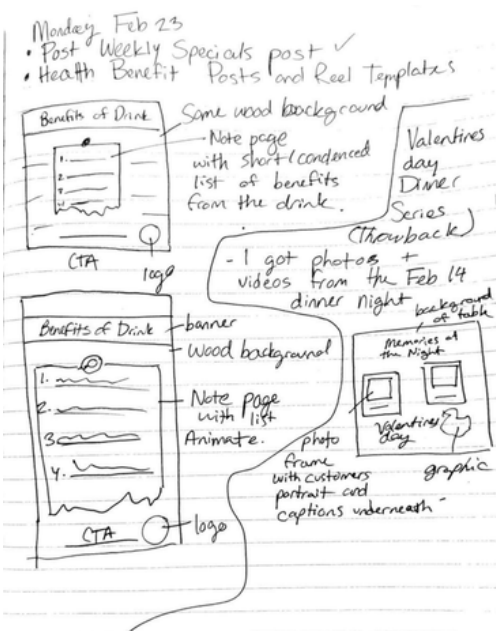 Monday Feb 23
• Post Weekly Specials post ✓
• Health Benefit Posts and Reel Templates
Benefits of Drink
1.
2.
3
CTA
logo
Same wood background
- Note page
with short/condenced
list of benefits
from the drink.
Benefits of Drink
1.
2.
3
4.
CTA
logo
banner
Wood background
Note page
with list
Animate.
Valentines
day
Dinner
Series
(Throwback)
- I got photos +
videos from the Feb 14
dinner night
background
of table
Memories of
the Night
Valentines
day
graphic
photo
frame
with customers
portrait and
captions underneath